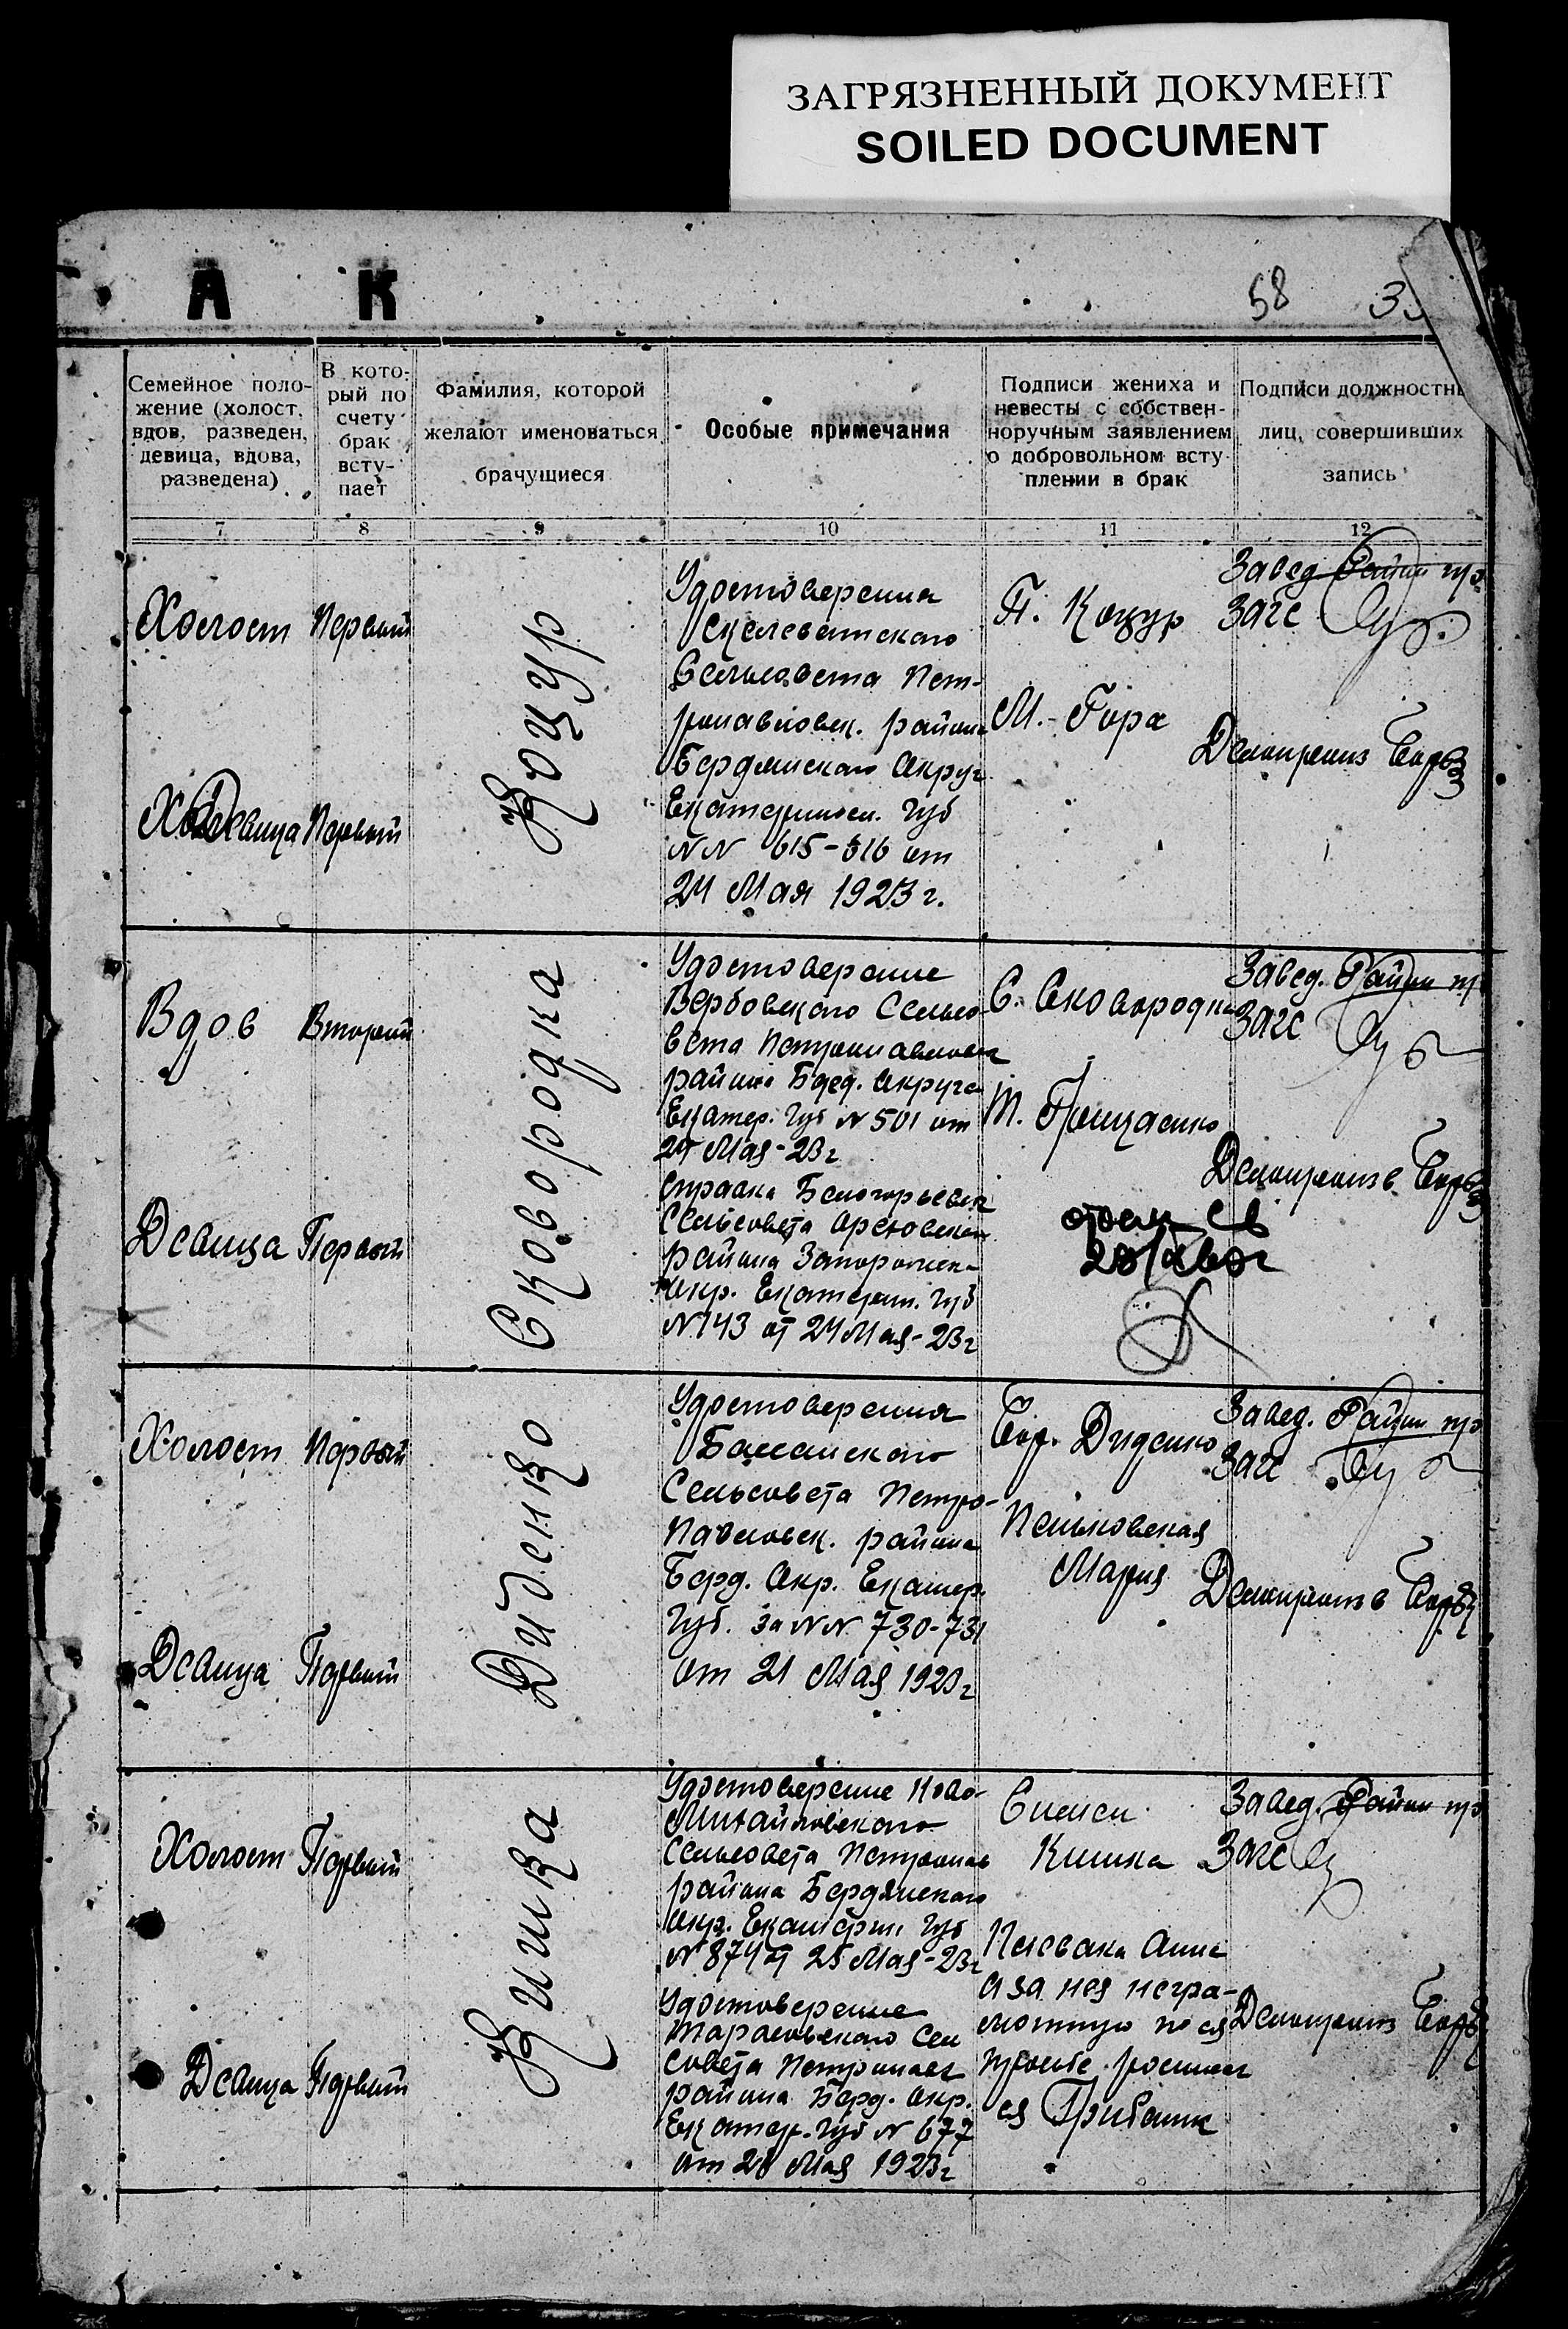 ЗАГРЯЗНЕННЫЙ ДОКУМЕНТ
SOILED DOCUMENT
А К
58
Семейное поло-
жение (холост,
вдов, разведен,
девица, вдова,
разведена)
В кото-
рый по
счету
брак
всту-
пает
Фамилия, которой
желают именоваться
брачущиеся
Особые примечания
Подписи жениха и
невесты с собствен-
норучным заявлением
о добровольном всту-
плении в брак
Подписи должностны
лиц, совершивших
запись
7 8 9 10 11 12
Холост
Первый
Девица
Первый
Коцур
Удостоверения
Сельсовета Пет-
ропавловск. района
Бердянского Округ
Екатериносл. Губ
NN 615-516 от
24 Мая 1923 г.
П. Коцур
М. Гора
Завед.
Загс
Вдов
Второй
Девица
Первый
Сковородка
Удостоверение
Вербовского Сельсо-
вета Петропавловск
района Берд. Округа
Екатер. Губ N 501 от
24 Мая-23 г
справка Белогорьевск
Сельсовета Ореховской
района Запорожск.
Окр. Екатерин. Губ
N 743 от 24 Мая-23 г
С. Сковородка
Т. Грищенко
Завед.
Загс
Холост
Первый
Девица
Первый
Диденко
Удостоверения
Сельсовета Петро-
павловск. района
Берд. Окр. Екатер.
Губ. за NN 730-731
от 21 Мая 1923 г
Диденко
Пеньковская
Мария
Завед.
Загс
Холост
Первый
Девица
Первый
Кишка
Удостоверение Ново-
Михайловского
Сельсовета Петропав
района Бердянского
Окр. Екатерин. Губ
N 874 от 25 Мая-23 г
Удостоверение
Тарасовского Сел
совета Петропавл
района Берд. Окр.
Екатер. Губ N 677
от 21 Мая 1923 г
Кишка
Анна
а за нея негра-
мотную по ея
просьбе росписал
ся
Завед.
Загс